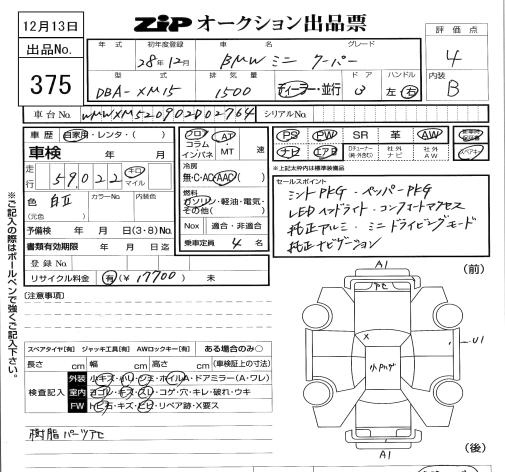 12月13日
ZiP オークション出品票
評価点
4
内装
B
出品No.
375
年式 初年度登録 車名 グレード
28年12月 BMW ミニ クーパー
型式 排気量 ドア ハンドル
DBA-XM15 1500 ディーラー・並行 3 左・右
車台No. WMWXM520902D02764 シリアルNo.
車歴 自家用・レンタ・( )
車検 年 月
走行 59,022 キロ マイル
色 白Ⅱ カラーNo. 内装色
(元色)
予備検 年 月 日(3・8)No.
書類有効期限 年 月 日迄
登録No.
リサイクル料金 有(¥ 17700 ) 未
フロア コラム インパネ AT・MT 速
冷房
無・C・AC・AAC( )
燃料
ガソリン・軽油・電気・その他( )
Nox 適合・非適合
乗車定員 4 名
PS PW SR 革 AW
ナビ エアB Dチューナー(純・社外含む) 社外ナビ 社外AW スペアキー
*上記太枠内は標準装備品
セールスポイント
ミントPKG・ペッパーPKG
LEDヘッドライト・コンフォートアクセス
純正アルミ・ミニドライビングモード
純正ナビゲーション
※ご記入の際はボールペンで強くご記入下さい。
[注意事項]
スペアタイヤ[有] ジャッキ工具[有] AWロックキー[有] ある場合のみ○
長さ cm 幅 cm 高さ cm (車検証上の寸法)
検査記入
外装 小キズ・小ヘコ・シミ・ホイルA・ドアミラー(A・ワレ)
室内 ヨゴレ・キズ・スレ・コゲ・穴・キレ・破れ・ウキ
FW トビ石・キズ・ヒビ・リペア跡・X要ス
樹脂パーツアセ
(前)
A1
アセ
X
U1
小PHゲ
A1
(後)